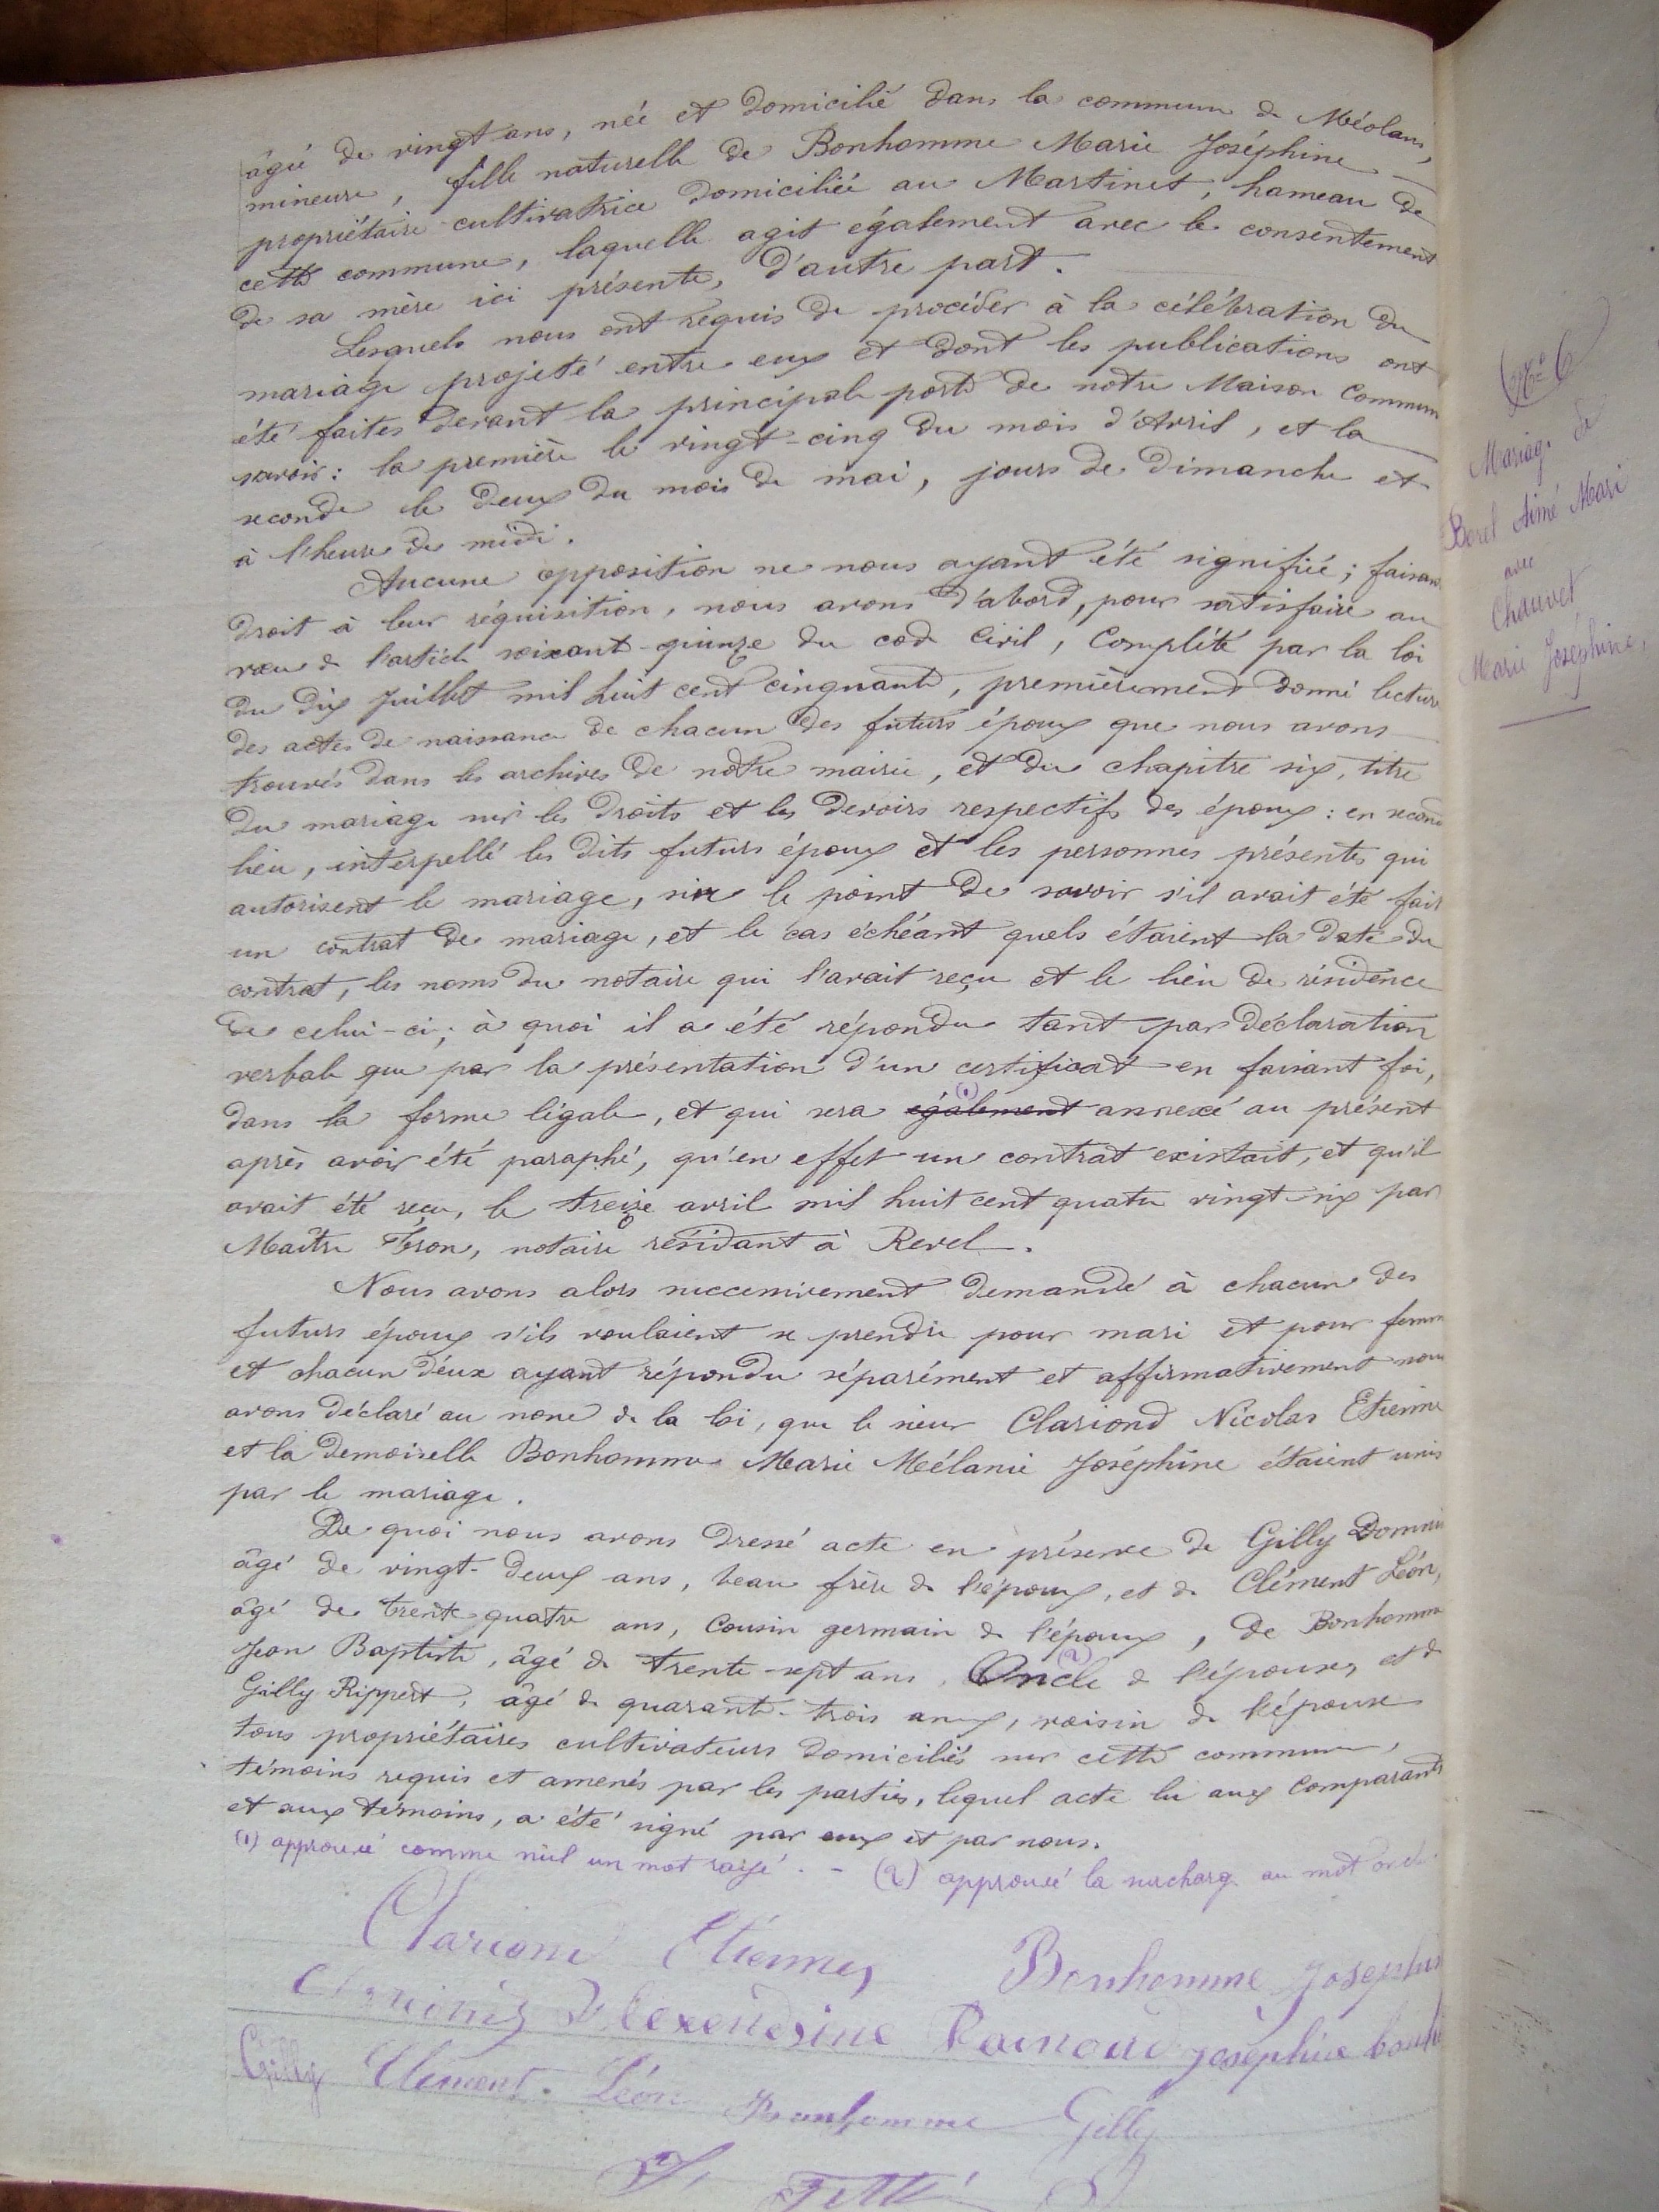 âgée de vingt ans, née et domicilié dans la commune de Méolans,
mineure, fille naturelle de Bonhomme Marie Joséphine
propriétaire cultivatrice domiciliée au Martinet, hameau de
cette commune, laquelle agit également avec le consentement
de sa mère ici présente, d'autre part.
Lesquels nous ont requis de procéder à la célébration du
mariage projeté entre eux et dont les publications ont
été faites devant la principale porte de notre Maison Commune
savoir : la première le vingt-cinq du mois d'Avril, et la
seconde le deux du mois de mai, jours de dimanche et
à l'heure de midi.
Aucune opposition ne nous ayant été signifiée ; faisant
droit à leur réquisition, nous avons d'abord, pour satisfaire au
vœu de l'article soixante-quinze du code Civil, Complété par la loi
du dix Juillet mil huit cent cinquante, premièrement donné lecture
des actes de naissance de chacun des futurs époux que nous avons
trouvés dans les archives de notre mairie, et du chapitre six, titre
du mariage sur les droits et les devoirs respectifs des époux : en second
lieu, interpellé les dits futurs époux et les personnes présentes qui
autorisent le mariage, sur le point de savoir s'il avait été fait
un contrat de mariage, et le cas échéant quels étaient la date du
contrat, les noms du notaire qui l'avait reçu et le lieu de résidence
de celui-ci ; à quoi il a été répondu tant par déclaration
verbale que par la présentation d'un certificat en faisant foi,
dans la forme légale, et qui sera (1) également annexé au présent
après avoir été paraphé, qu'en effet un contrat existait, et qu'il
avait été reçu, le treize avril mil huit cent quatre vingt-six par
Maître Tron, notaire résidant à Revel.
Nous avons alors successivement demandé à chacun des
futurs époux s'ils voulaient se prendre pour mari et pour femme
et chacun d'eux ayant répondu séparément et affirmativement nous
avons déclaré au nom de la loi, que le sieur Clariond Nicolas Etienne
et la demoiselle Bonhomme Marie Mélanie Joséphine étaient unis
par le mariage.
De quoi nous avons dressé acte en présence de Gilly
âgé de vingt-deux ans, beau frère de l'époux, et de Clément Léon,
âgé de trente quatre ans, Cousin germain de l'époux, de Bonhomme
Jean Baptiste, âgé de trente-sept ans, (2) Oncle de l'épouse, et de
Gilly Rippert, âgé de quarante-trois ans, voisin de l'épouse
tous propriétaires cultivateurs domiciliés sur cette commune,
témoins requis et amenés par les parties, lequel acte lu aux Comparants
et aux témoins, a été signé par eux et par nous.
(1) approuvé comme nul un mot rayé. - (2) approuvé la surcharge au mot oncle.
Clariond Etienne, Bonhomme Josephine
Alexendrine Joséphine
Gilly Clément Léon Bonhomme Gilly
No 6
Mariage de
Borel Aimé Mari
avec
Chauvet
Marie Joséphine,